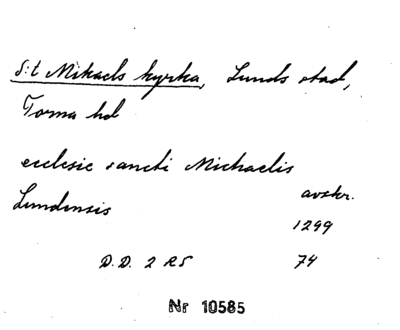 S:t Mikaels kyrka, Lunds stad,
Torna hd
ecclesie sancti Michaelis
Lundensis
avskr.
1299
D.D. 2 R5 74
Nr 10585